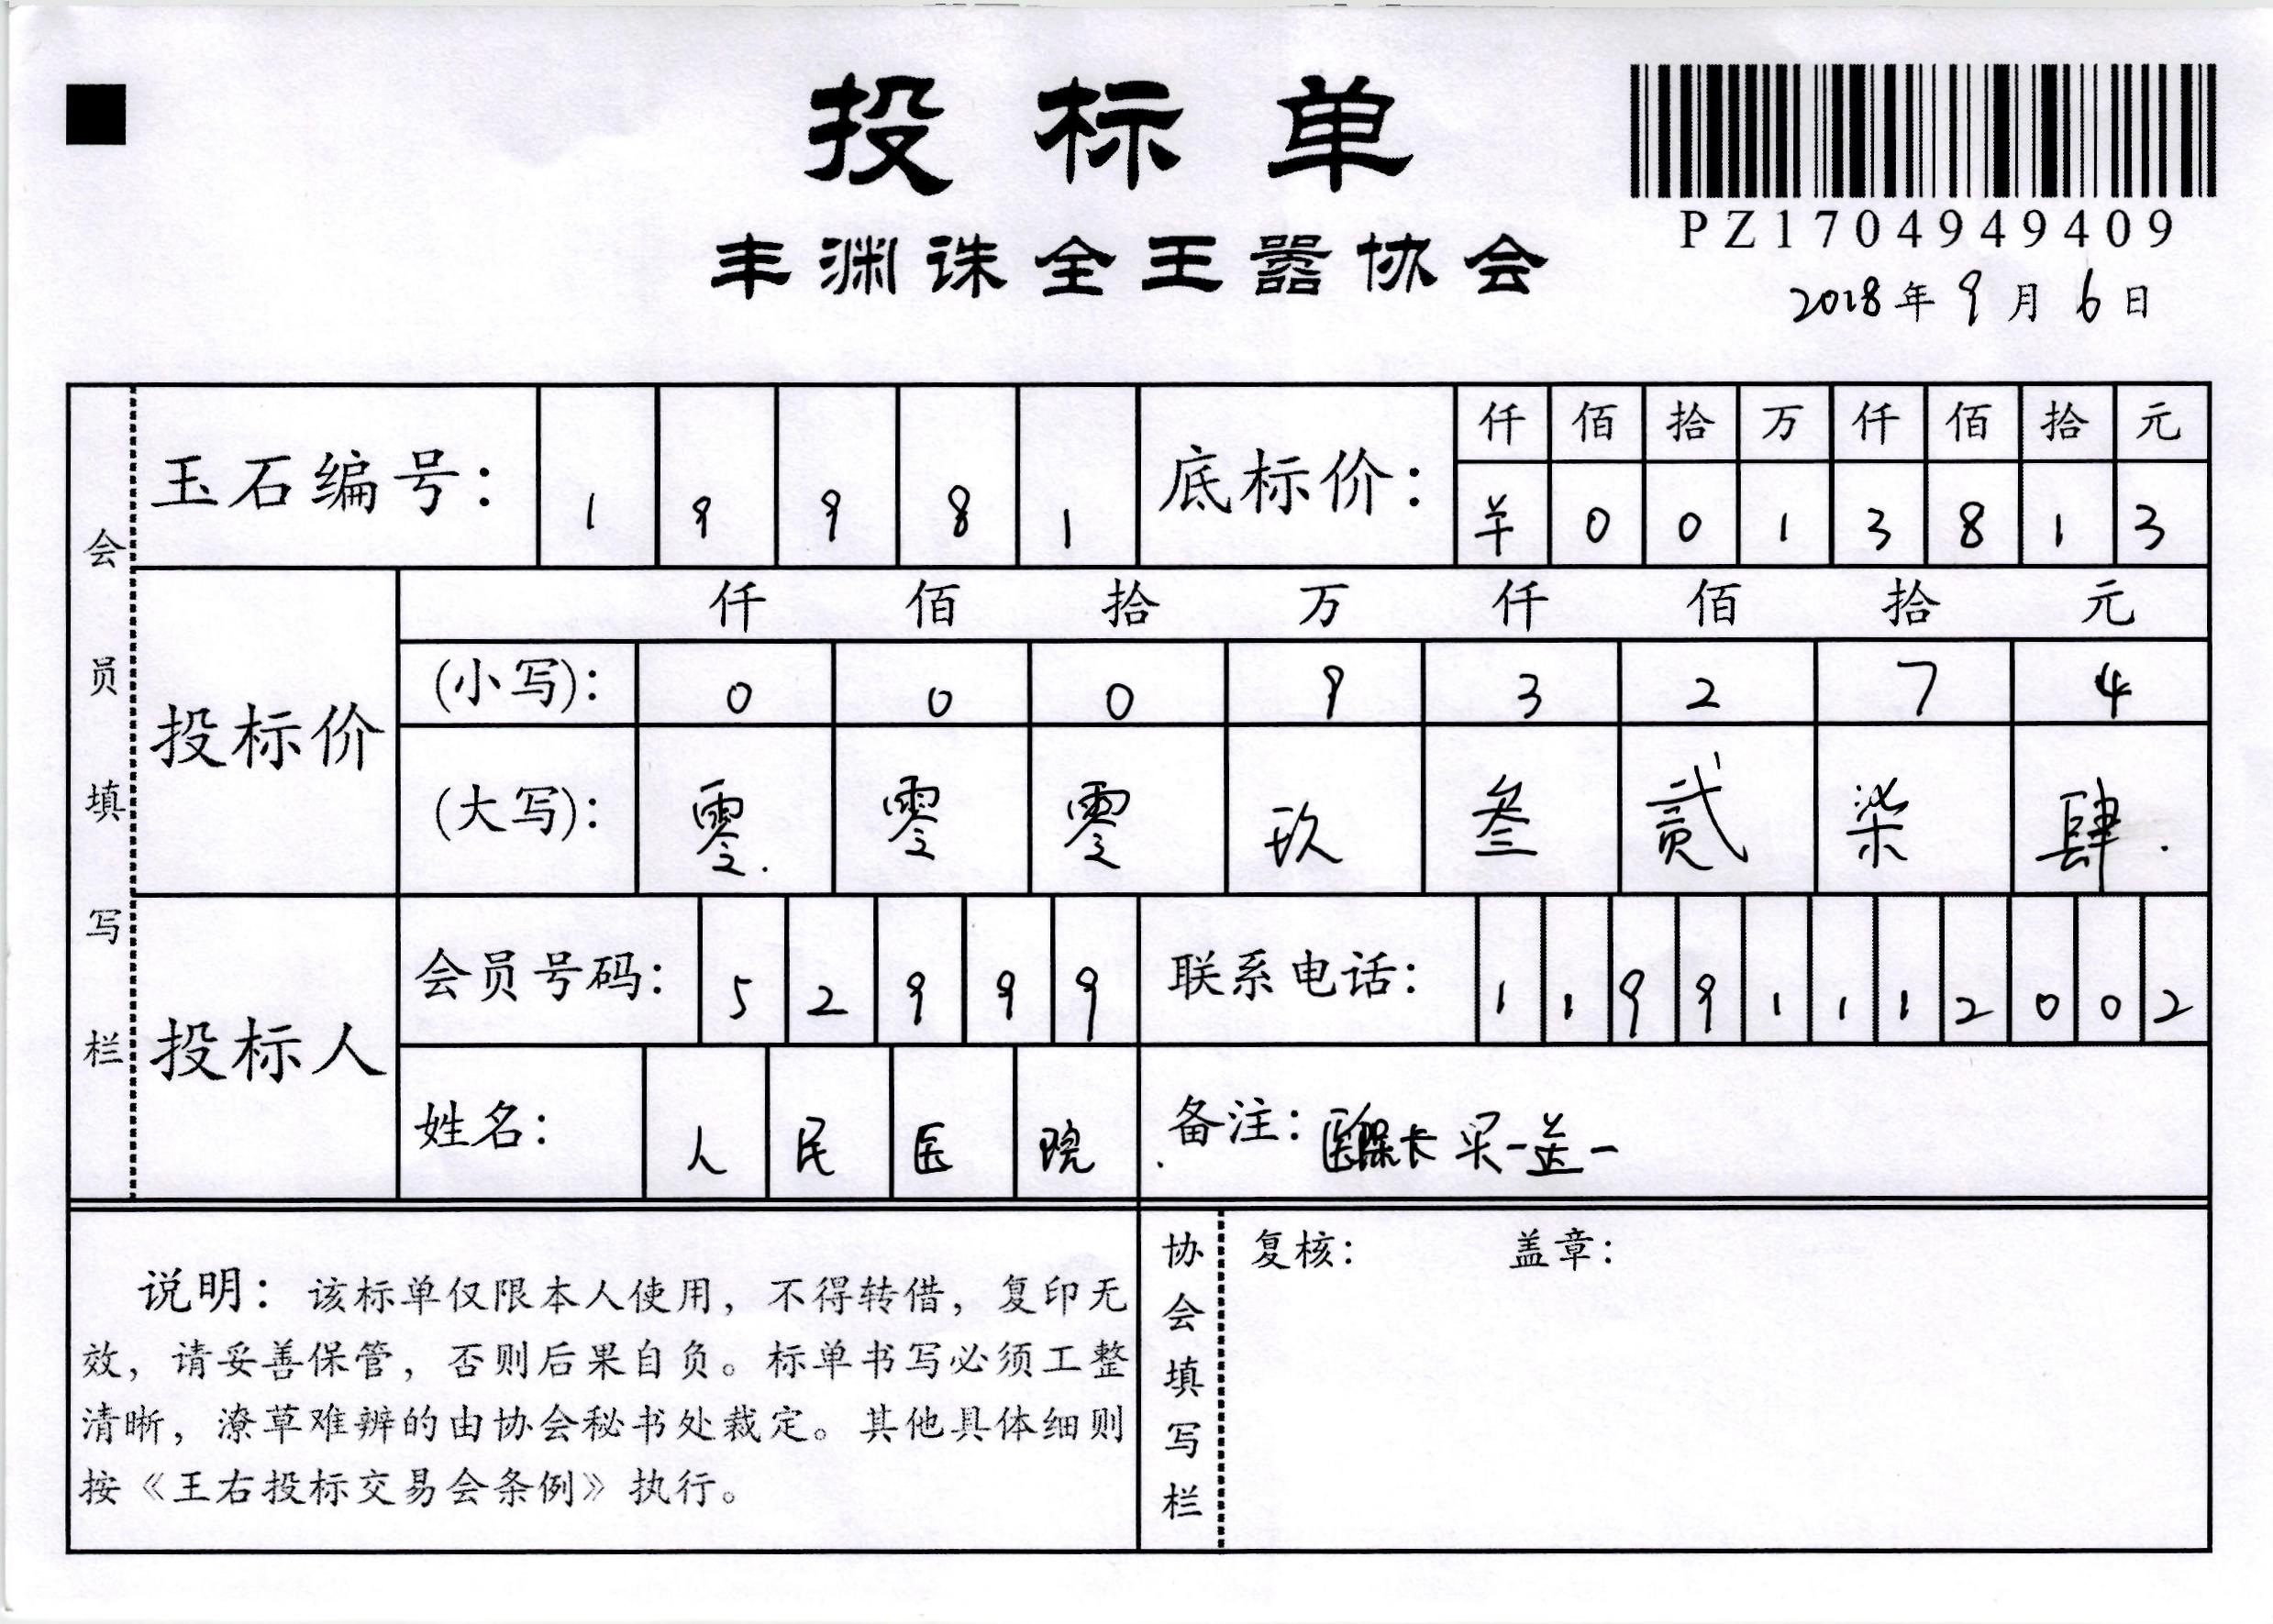 投标单
丰渊诛全王嚣协会
PZ1704949409
2018年9月6日
会员填写栏
玉石编号: 1 9 9 8 1
底标价: 仟 佰 拾 万 仟 佰 拾 元
羊 0 0 1 3 8 1 3
投标价
仟 佰 拾 万 仟 佰 拾 元
(小写): 0 0 0 9 3 2 7 4
(大写): 零 零 零 玖 叁 贰 柒 肆
投标人
会员号码: 5 2 9 9 9
联系电话: 1 1 9 9 1 1 1 2 0 0 2
姓名: 人 民 医 院
备注: 医保卡买一送一
说明: 该标单仅限本人使用，不得转借，复印无
效，请妥善保管，否则后果自负。标单书写必须工整
清晰，潦草难辨的由协会秘书处裁定。其他具体细则
按《王右投标交易会条例》执行。
协会填写栏
复核: 盖章: